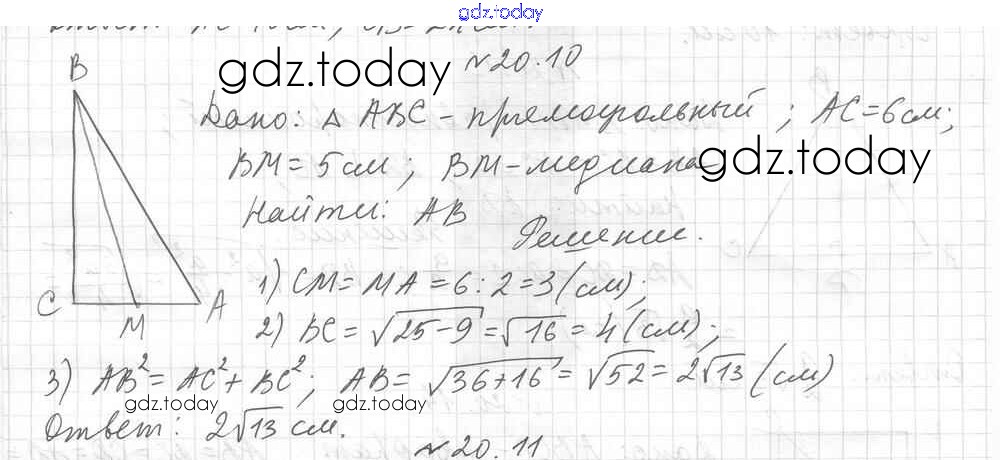 gdz.today
№20.10
gdz.today
B
Дано: △ ABC - прямоугольный ; AC=6см;
BM=5см; BM-медиана
gdz.today
Найти: AB
Решение.
1) CM=MA=6:2=3(см);
C
M
A
2) BC=√25-9=√16=4(см);
3) AB²=AC²+BC²; AB=√36+16=√52=2√13(см)
gdz.today
gdz.today
Ответ: 2√13 см.
№20.11